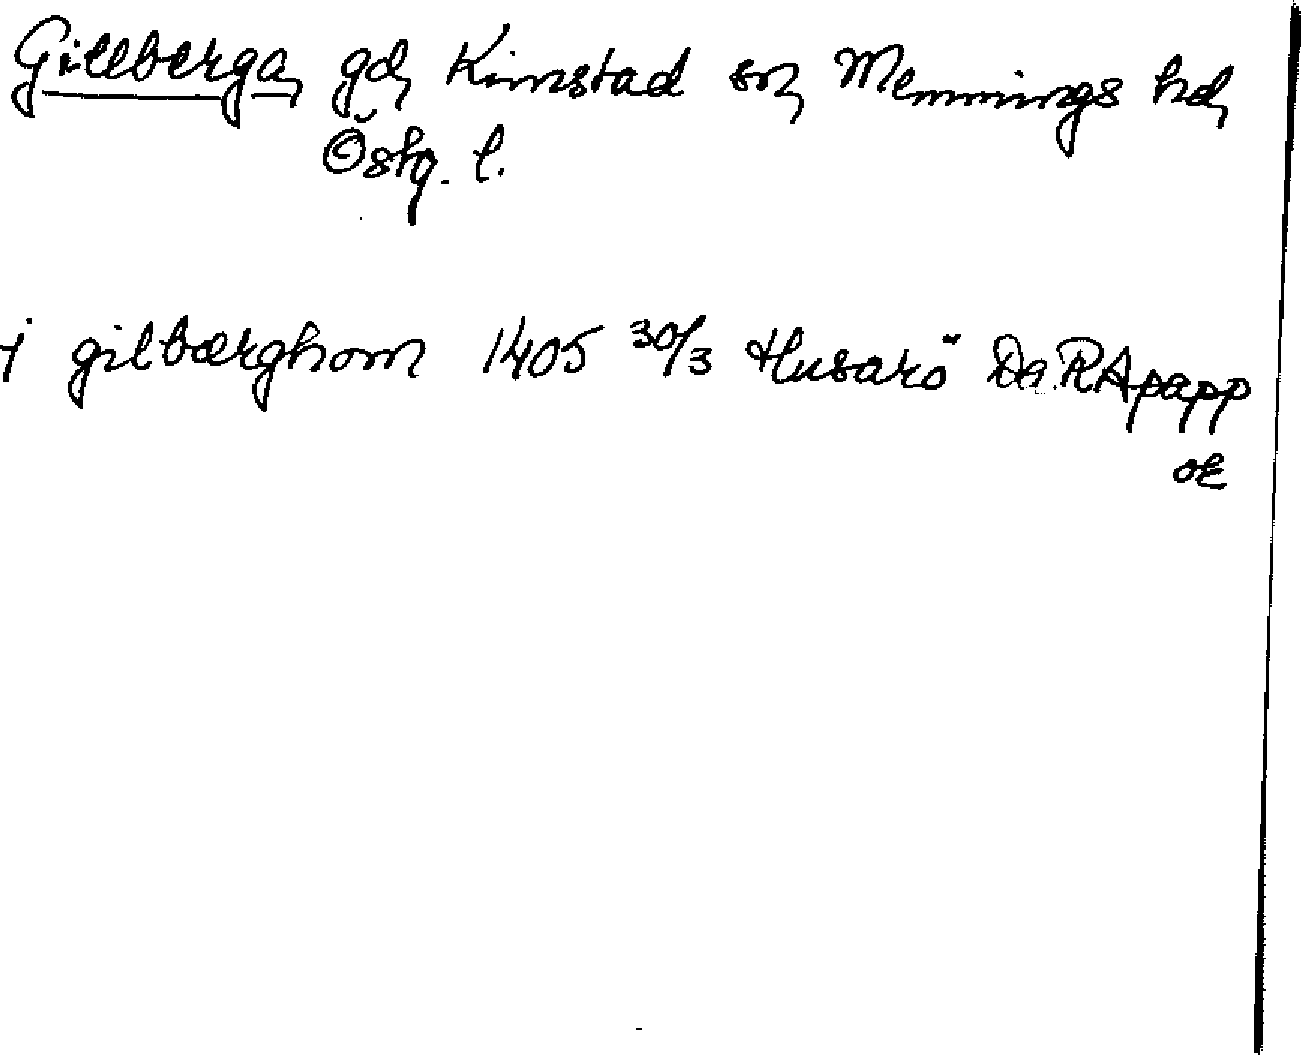 Gillberga, gd, Kimstad sn, Memmings hd,
Östg. l.
j gilbærghom 1405 30/3 Husarö Da. RApapp
OE